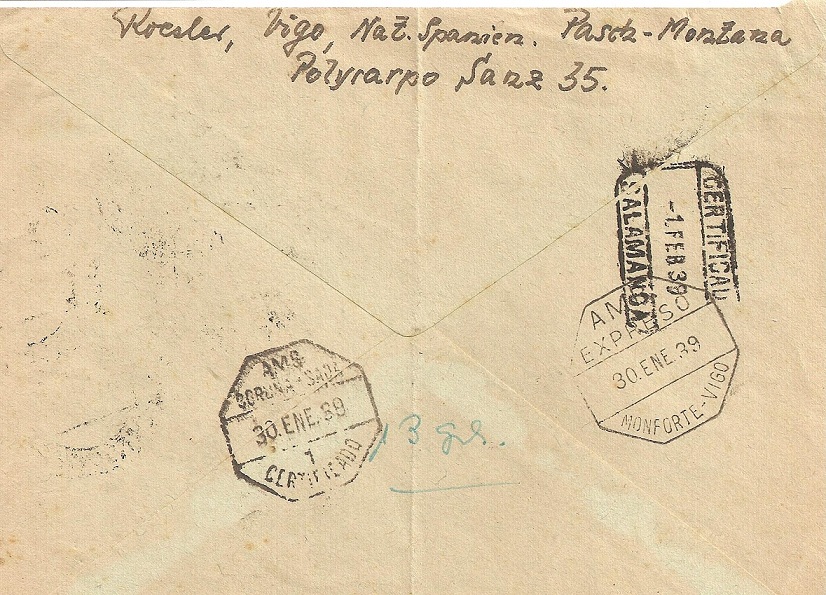 Koesler, Vigo, Nat. Spanien. Pasch-Montana
Polycarpo Sanz 35.
CERTIFICAD
-1. FEB 39
SALAMANCA
AMB
EXPRESO
30.ENE.39
MONFORTE-VIGO
AMB
CORUÑA-SADA
30.ENE.39
1
CERTIFICADO
13 grs.